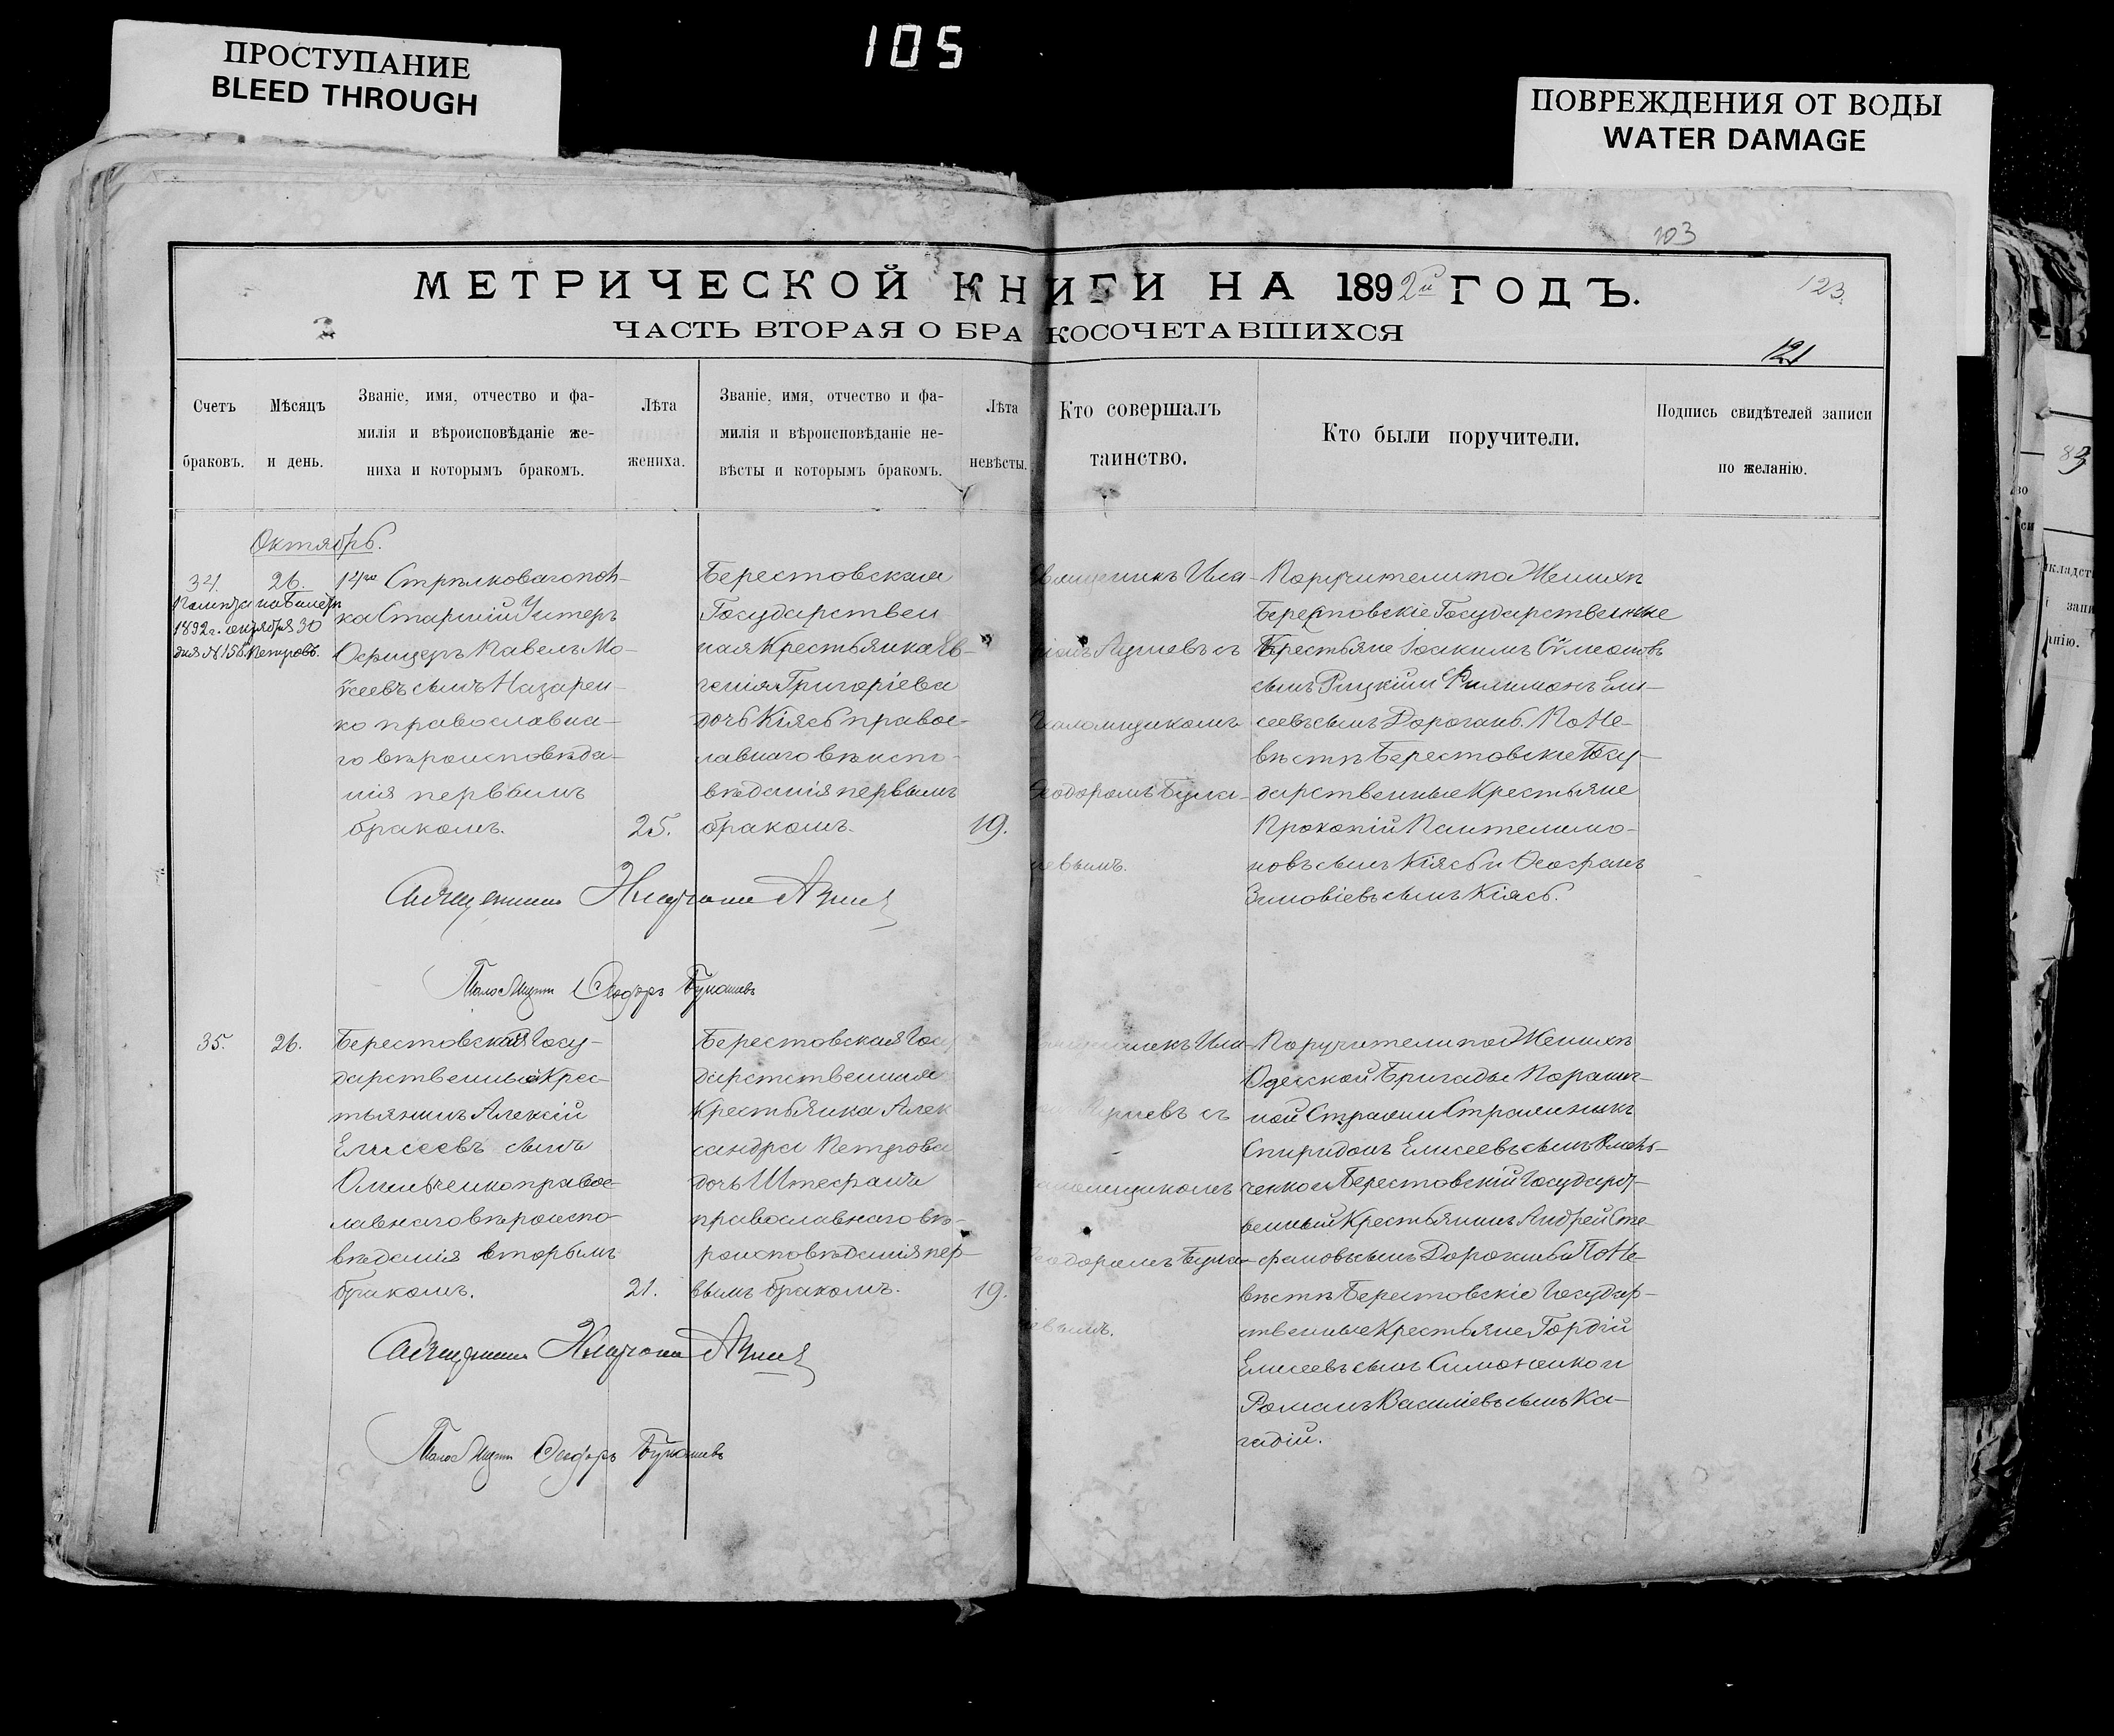 ПРОСТУПАНИЕ
BLEED THROUGH
105
ПОВРЕЖДЕНИЯ ОТ ВОДЫ
WATER DAMAGE
103
МЕТРИЧЕСКОЙ КНИГИ НА 1892й ГОДЪ.
123.
ЧАСТЬ ВТОРАЯ О БРАКОСОЧЕТАВШИХСЯ
121
Счетъ
браковъ.
Мѣсяцъ
и день.
Званіе, имя, отчество и фа-
милія и вѣроисповѣданіе же-
ниха и которымъ бракомъ.
Лѣта
жениха.
Званіе, имя, отчество и фа-
милія и вѣроисповѣданіе не-
вѣсты и которымъ бракомъ.
Лѣта
невѣсты.
Кто совершалъ
таинство.
Кто были поручители.
Подпись свидѣтелей записи
по желанію.
Октябрь.
34.
26.
1892 г. октября 30
дня № 158. Петровъ.
14го Стрѣлковаго пол-
ка Старшій Унтеръ
Офицеръ Павелъ Мо-
ѵсеевъ сынъ Назарен-
ко православна-
го вѣроисповѣда-
нія первымъ
бракомъ.
25.
Берестовская
Государствен
ная Крестьянка Ев-
генія Григоріева
дочь Кіясъ правос-
лавнаго вѣиспо-
вѣданія первымъ
бракомъ.
19.
Священникъ Ила-
ріонъ Ациевъ съ
Псаломщикомъ
Ѳеодоромъ Бука-
невымъ.
Поручители по Женихѣ
Берестовскіе Государственные
Крестьяне Іоакимъ Сѵмеоновъ
сынъ Рицкій и Филимонъ Ели-
сеевъ сынъ Дорогань. По Не-
вѣстѣ Берестовскіе Госу-
дарственные Крестьяне
Прокопій Пантелимо-
новъ сынъ Кіясъ и Ѳеофанъ
Зиновіевъ сынъ Кіясъ.
Священникъ
Псаломщикъ Ѳеодоръ
35.
26.
Берестовскій Госу-
дарственный Крес-
тьянинъ Алексій
Елисеевъ сынъ
Омельченко правос-
лавнаго вѣроиспо-
вѣданія вторымъ
бракомъ.
21.
Берестовская Госу
дарстственная
Крестьянка Алек
сандра Петрова
дочь Штефанъ
православнаго вѣ-
роисповѣданія пер-
вымъ бракомъ.
19.
Поручители по Женихѣ
Одесской Бригады Погранич-
ной Стражи Стражникъ
Спиридонъ Елисеевъ сынъ Омель-
ченко и Берестовскій Государст-
венный Крестьянинъ Андрей Сте-
фановъ сынъ Дорогань. По Не-
вѣстѣ Берестовскіе Государ-
ственные Крестьяне Гордій
Елисеевъ сынъ Симоненко и
Романъ Василіевъ сынъ Ка-
гадій.
Священникъ
Псаломщикъ Ѳеодоръ
83